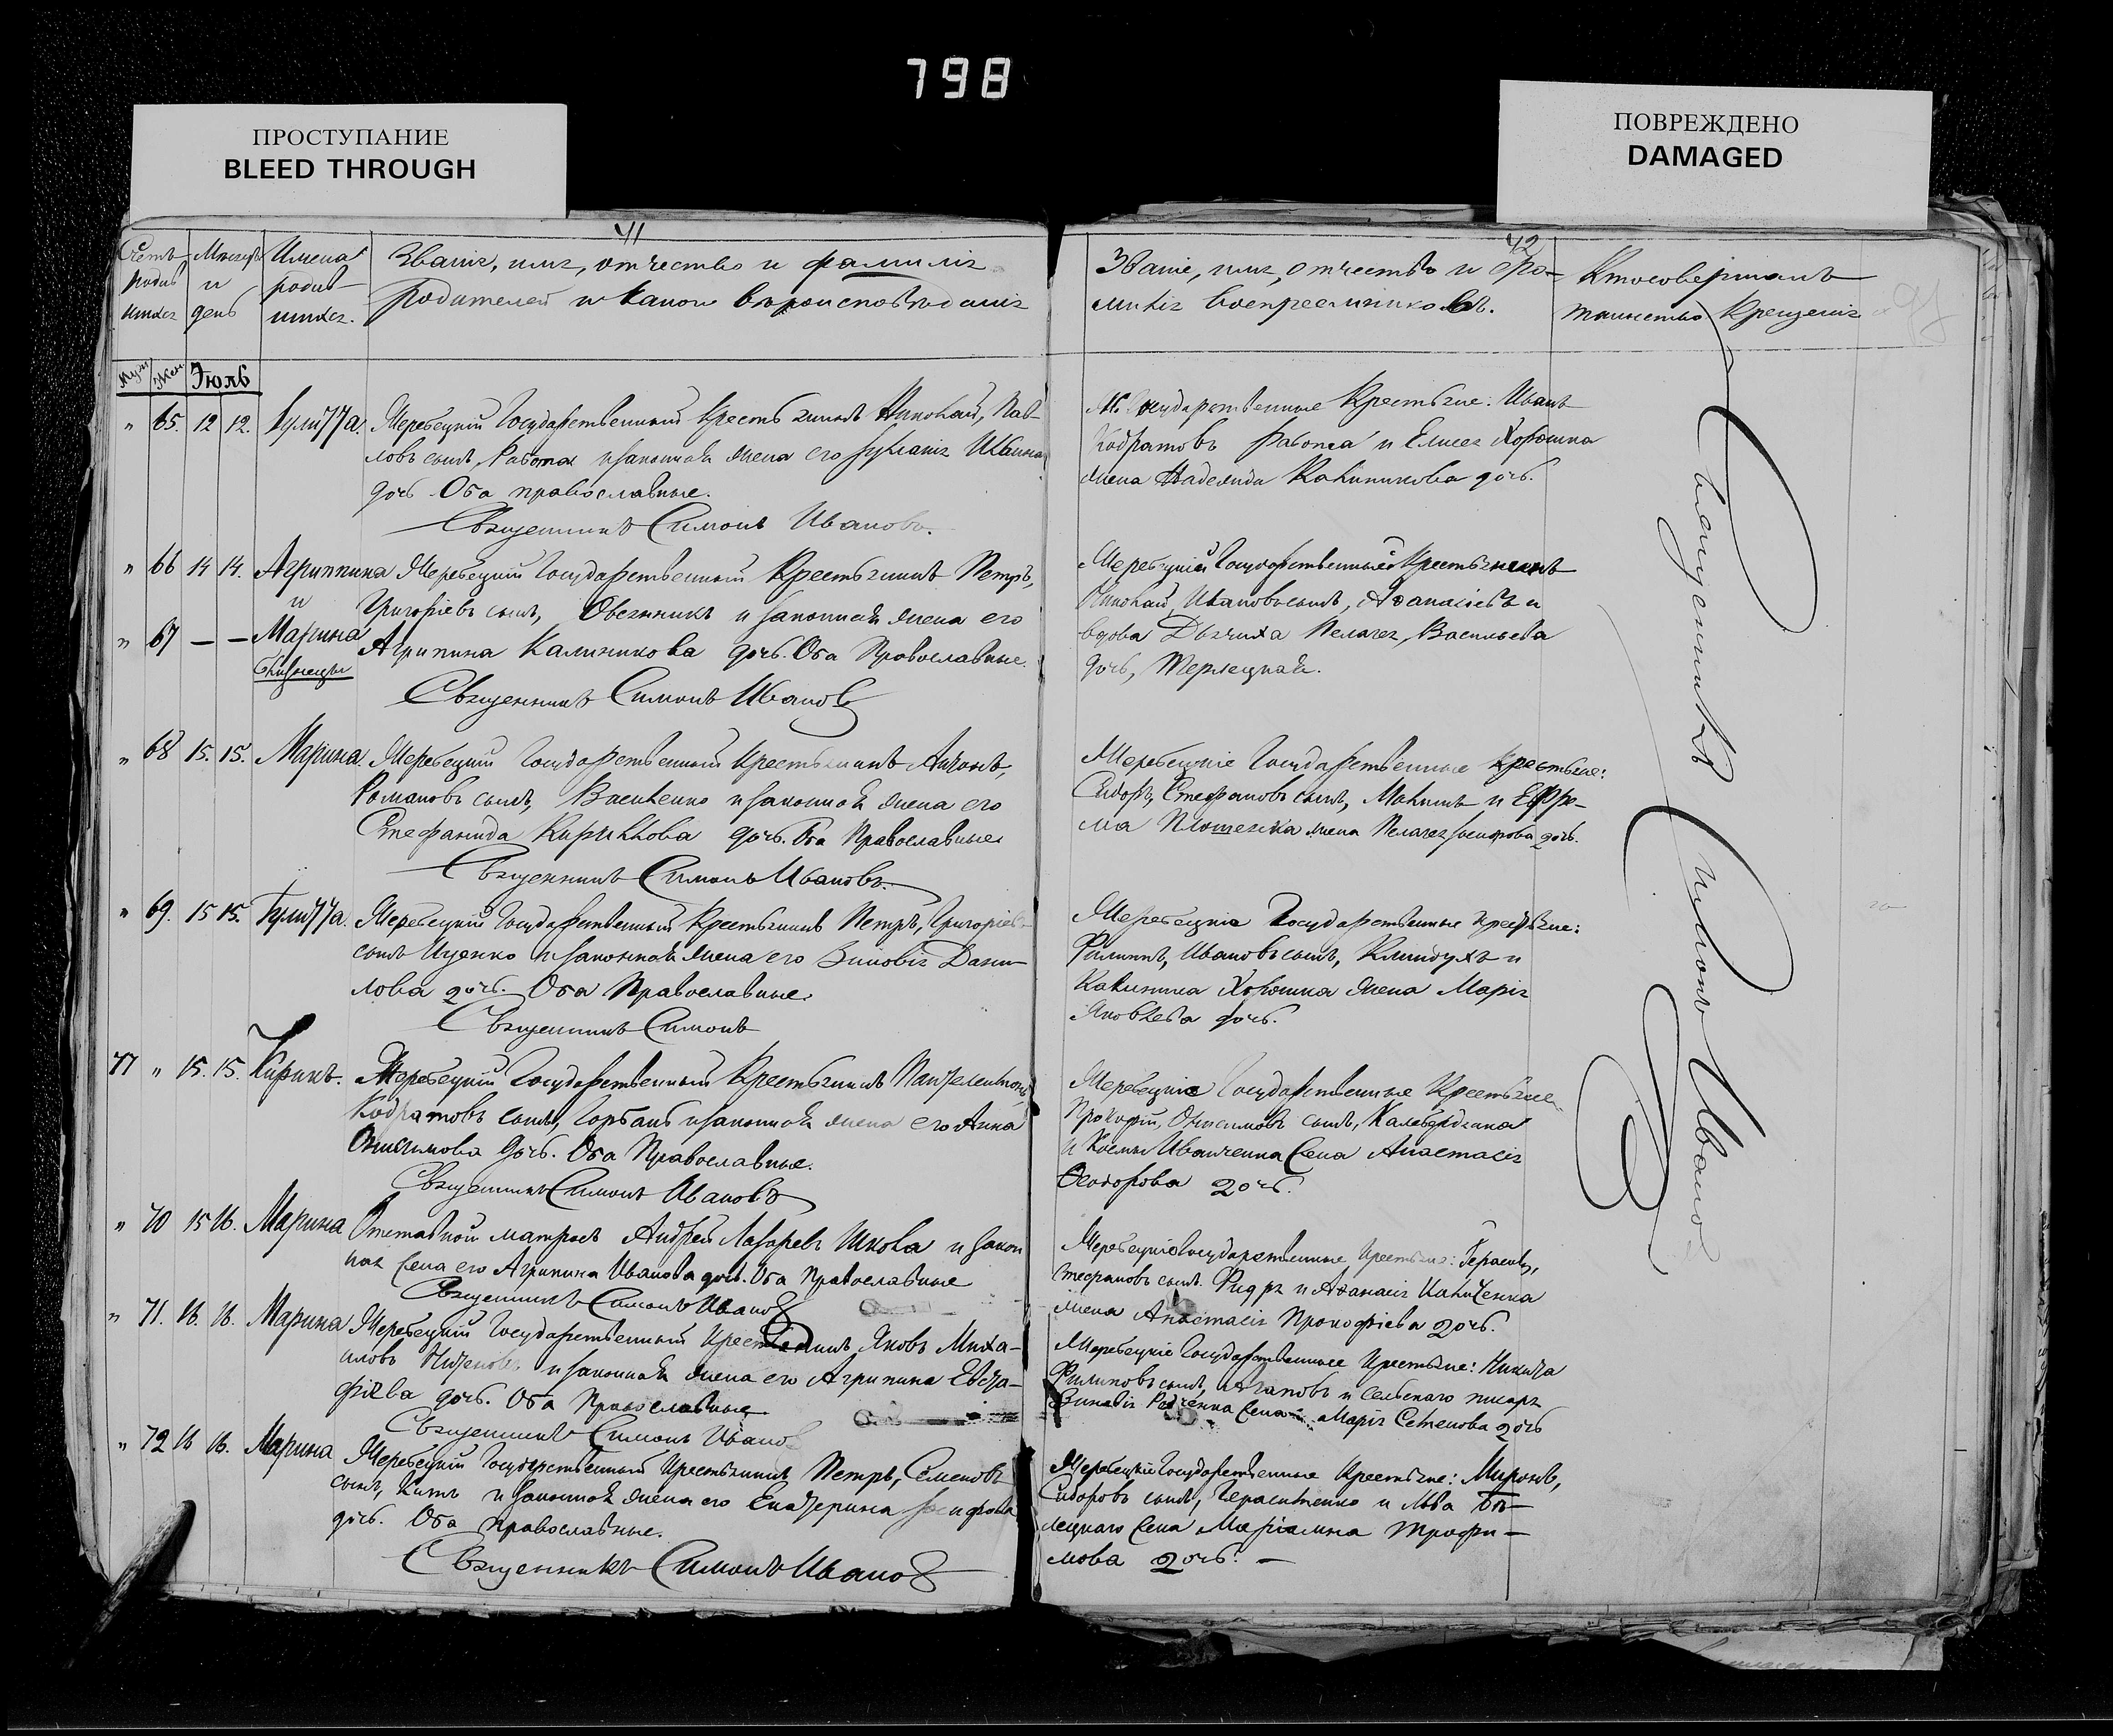 798
ПРОСТУПАНИЕ
BLEED THROUGH
ПОВРЕЖДЕНО
DAMAGED
41
Счетъ родив шихся
Мужс Жен
Месяцъ и день
Іюль
Имена родив- шихся.
Званіе, имя, отчество и фамилія
родителей и какого вероисповѣданія
" 65. 12 12. Іулитта. Жеребецкій Государственный крестьянинъ Николай, Пав-
ловъ сынъ, Работа и законная жена его Іуліанія Иванова
дочь Оба православные.
Священникъ Симонъ Ивановъ.
" 66 14 14. Агриппина Жеребецкій Государственный Крестьянинъ Петръ,
и Григоріевъ сынъ, и законная жена его
" 67 — — Марина Агрипина Калиникова дочь. Оба Православные.
близнецы
Священникъ Симонъ Иванов
" 68 15. 15. Марина. Жеребецкій Государственный крестьянинъ
Романовъ сынъ, Василенко и законная жена его
Стефанида Кирилова дочь. Оба Православные
Священникъ Симонъ Ивановъ.
" 69. 15 15. Іулитта. Жеребецкій Государственный крестьянинъ Петръ, Григоріев
сынъ Иценко и законная жена его Зиновія Дани-
лова дочь. Оба Православные.
Священникъ Симонъ
77 " 15. 15. Кирикъ. Жеребецкій Государственный Крестьянинъ Пантелеимонъ,
Кодратовъ сынъ, Горбань и законная жена его Анна
Онисимова дочь. Оба Православные.
Священникъ Симонъ Ивановъ
" 70 15 16. Марина Отставной матросъ Андрей Лазаревъ Школа и закон
ная жена его Агрипина Иванова дочь. Оба Православные
Священникъ Симонъ Иванов
" 71. 16. 16. Марина Жеребецкій Государственный Крестьянинъ Яковъ Миха-
иловъ и законная жена его Агрипина Евста-
фіева дочь. Оба Православные
Священникъ Симонъ Иванов
" 72 16 16. Марина Жеребецкій Государственный Крестьянинъ Петръ, Семеновъ
сынъ, Китъ и законная жена его Екатерина
дочь. Оба православные.
Священникъ Симонъ Иванов
42
Званіе, имя, отчество и фа-
милія воспреемниковъ.
Кто совершалъ
таинство Крещенія
Государственные Крестьяне: Иванъ
Кодратовъ Работа и Елисея Хорошка
жена Надежда Калиникова дочь.
Жеребецкій Государственный Крестьянинъ
Николай, Ивановъ сынъ, Аѳанасіевъ и
вдова Дьячиха Пелагея, Васильева
дочь, Терлецкая.
Жеребецкіе Государственные крестьяне:
Сидоръ, Стефановъ сынъ, и Ефре-
ма жена Пелагея дочь.
Жеребецкіе Государственные крестьяне:
Филиппъ, Ивановъ сынъ, и
Калиника Хорошка жена Марія
Яковлева дочь.
Жеребецкіе Государственные Крестьяне
Прокофій, Онисимовъ сынъ,
и Косьмы Иванченка жена Анастасія
Ѳеодорова дочь.
Жеребецкіе Государственные Крестьяне: Герасимъ,
Стефановъ сынъ и Аѳанасія
жена Анастасія Прокофіева дочь.
Жеребецкіе Государственные Крестьяне: Никита
Филиповъ сынъ, и сельскаго писаря
жена Марія Семенова дочь
Жеребецкіе Государственные Крестьяне: Миронъ,
Сидоровъ сынъ, Герасименко и Льва Бѣ-
лецкаго жена Маріамна Трофи-
мова дочь. —
Священникъ Симонъ Иванов